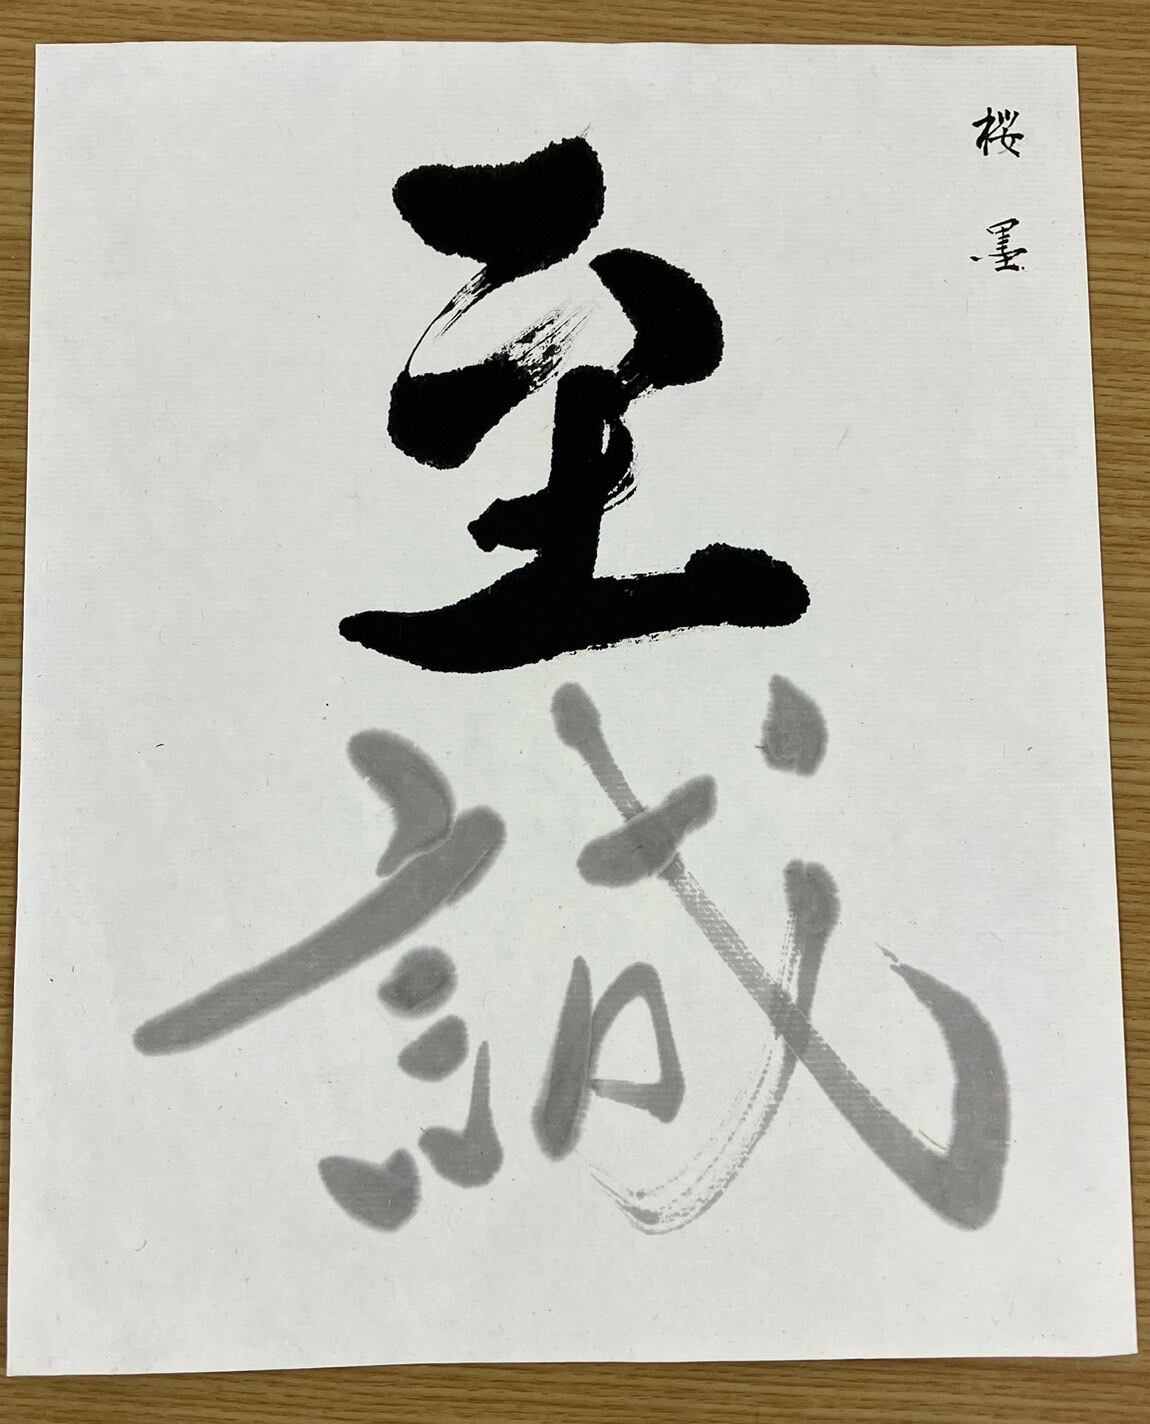 桜墨
至誠